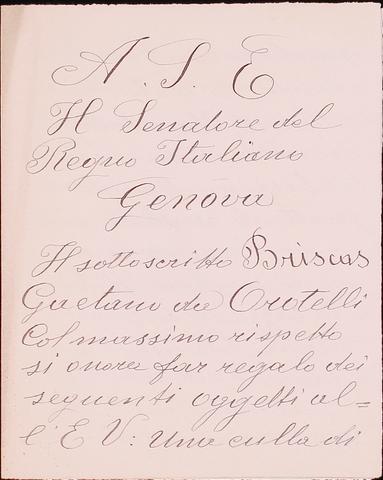 A. S. E
Il Senatore del
Regno Italiano
Genova
Il sottoscritto Briscas
Gaetano da Orotelli
Col massimo rispetto
si onora far regalo dei
seguenti oggetti al=
l'E V: Una culla di